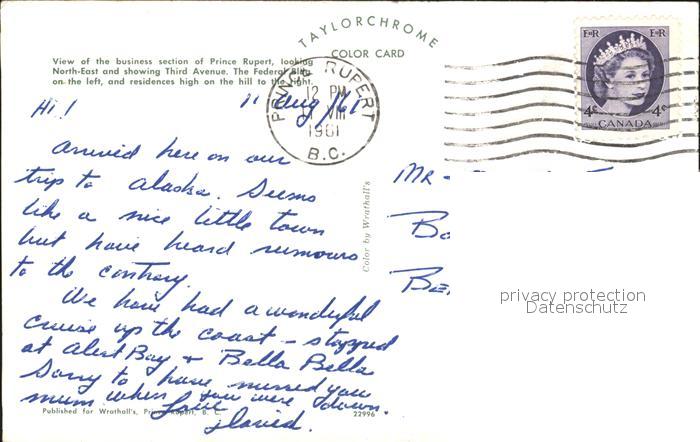 TAYLORCHROME
COLOR CARD
View of the business section of Prince Rupert, looking
North-East and showing Third Avenue. The Federal Bldg.
on the left, and residences high on the hill to the right.
PRINCE RUPERT
12 PM
11 VIII
1961
B.C.
EIIR EIIR
4c 4c
CANADA
Hi! 11 Aug /61
Arrived here on our
trip to Alaska. Seems
like a nice little town
but have heard rumours
to the contrary.
We have had a wonderful
cruise up the coast - stopped
at Alert Bay & Bella Bella
Sorry to have missed you
mum when you were down.
Love
David.
Mr
Bo
Be
Color by Wrathall's
privacy protection
Datenschutz
Published for Wrathall's, Prince Rupert, B. C. 22996